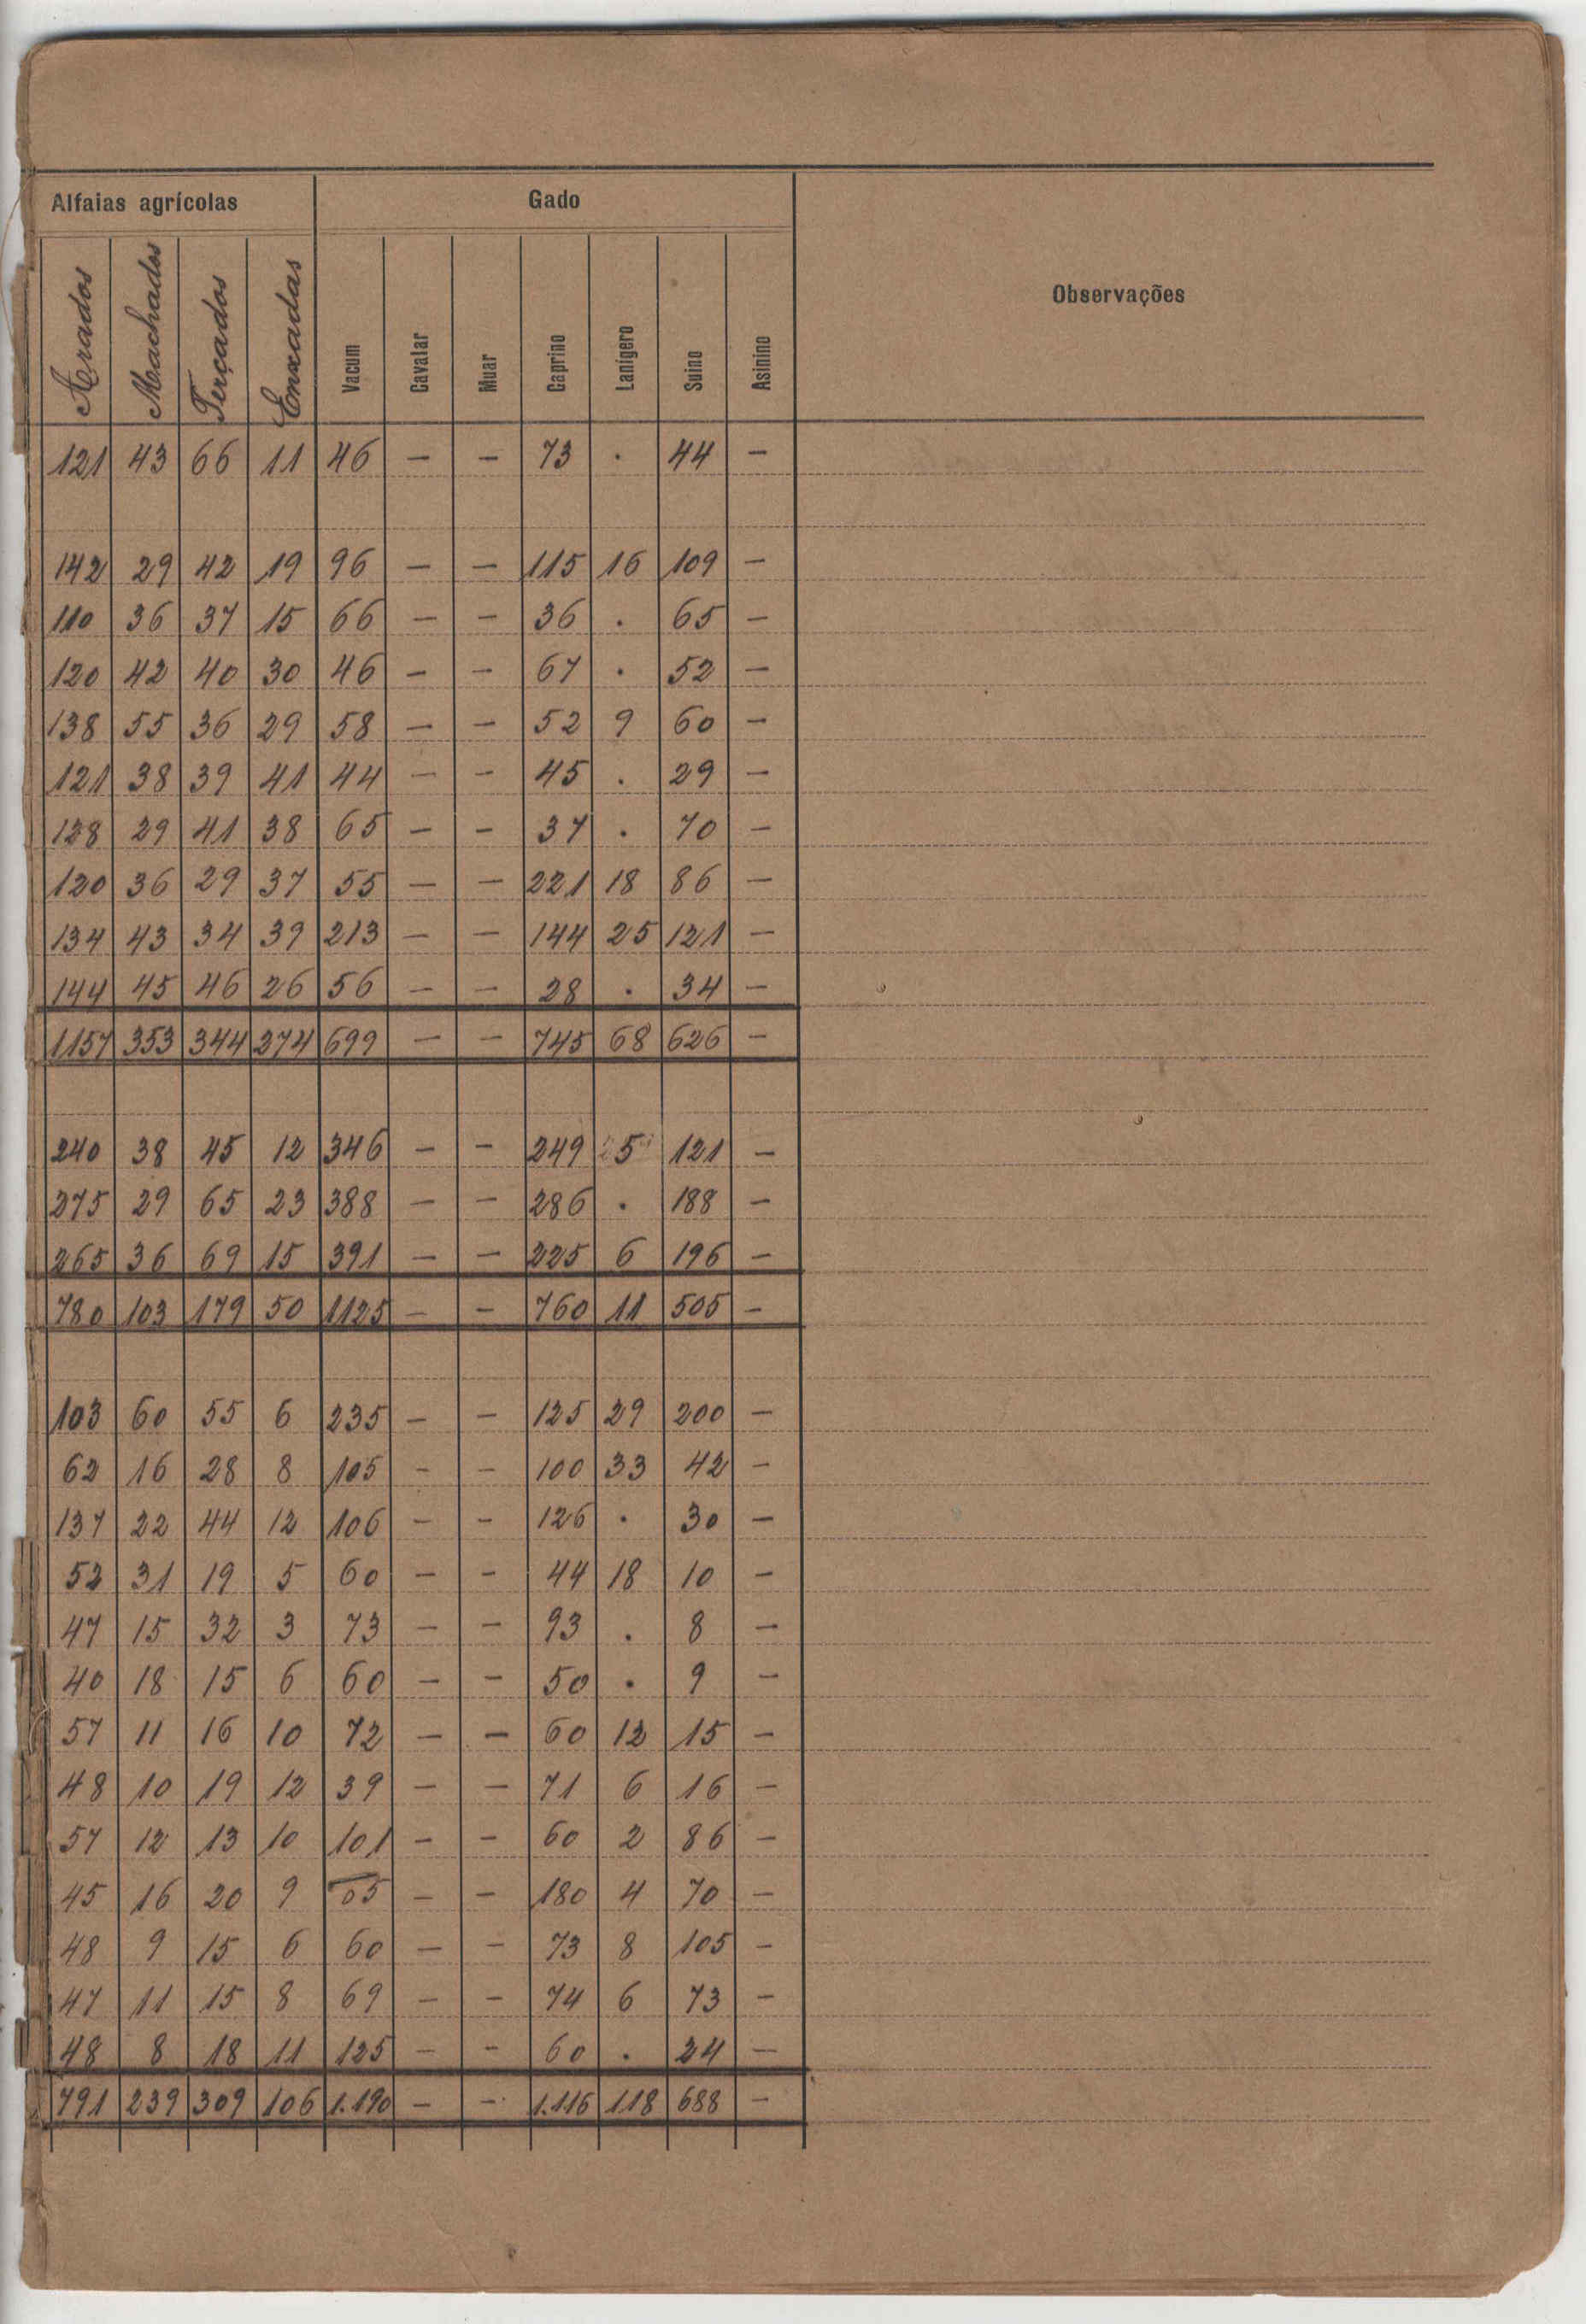 Alfaias agrícolas Gado Observações
Arados Machados Terçados Enxadas Vacum Cavalar Muar Caprino Lanígero Suino Asinino
121 43 66 11 46 — — 73 . 44 —
142 29 42 19 96 — — 115 16 109 —
110 36 37 15 66 — — 36 . 65 —
120 42 40 30 46 — — 67 . 52 —
138 55 36 29 58 — — 52 9 60 —
121 38 39 41 44 — — 45 . 29 —
128 29 41 38 65 — — 37 . 70 —
120 36 29 37 55 — — 221 18 86 —
134 43 34 39 213 — — 144 25 121 —
144 45 46 26 56 — — 28 . 34 —
1157 353 344 274 699 — — 745 68 626 —
240 38 45 12 346 — — 249 5 121 —
275 29 65 23 388 — — 286 . 188 —
265 36 69 15 391 — — 225 6 196 —
780 103 179 50 1125 — — 760 11 505 —
103 60 55 6 235 — — 125 29 200 —
62 16 28 8 105 — — 100 33 42 —
137 22 44 12 106 — — 126 . 30 —
52 31 19 5 60 — — 44 18 10 —
47 15 32 3 73 — — 93 . 8 —
40 18 15 6 60 — — 50 . 9 —
57 11 16 10 72 — — 60 12 15 —
48 10 19 12 39 — — 71 6 16 —
57 12 13 10 101 — — 60 2 86 —
45 16 20 9 — — 180 4 70 —
48 9 15 6 60 — — 73 8 105 —
47 11 15 8 69 — — 74 6 73 —
48 8 18 11 125 — — 60 . 24 —
791 239 309 106 1.190 — — 1.116 118 688 —